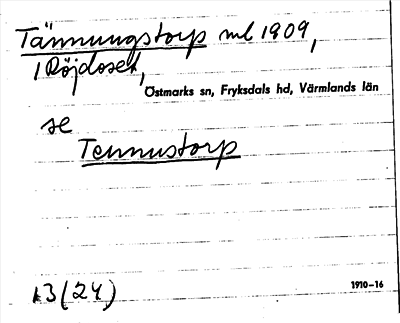 Tännungstorp ml 1909,
1 Röjdoset,
Östmarks sn, Fryksdals hd, Värmlands län
se
Tennustorp
13 (24)
1910-16